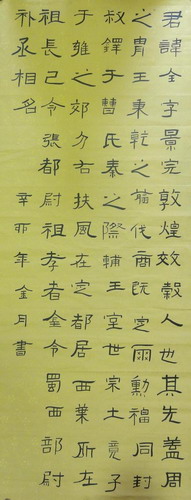 君諱全字景完敦煌效穀人也其先蓋周
之胄王秉乾之翦伐商既定爾勳福同封
叔鐸于曹氏秦之際輔王室世宗土竟子
于雍之郊分右扶風在定都居西葉所在
祖長己令張都尉祖孝者金令蜀西部尉
補丞相名 辛卯年金月書